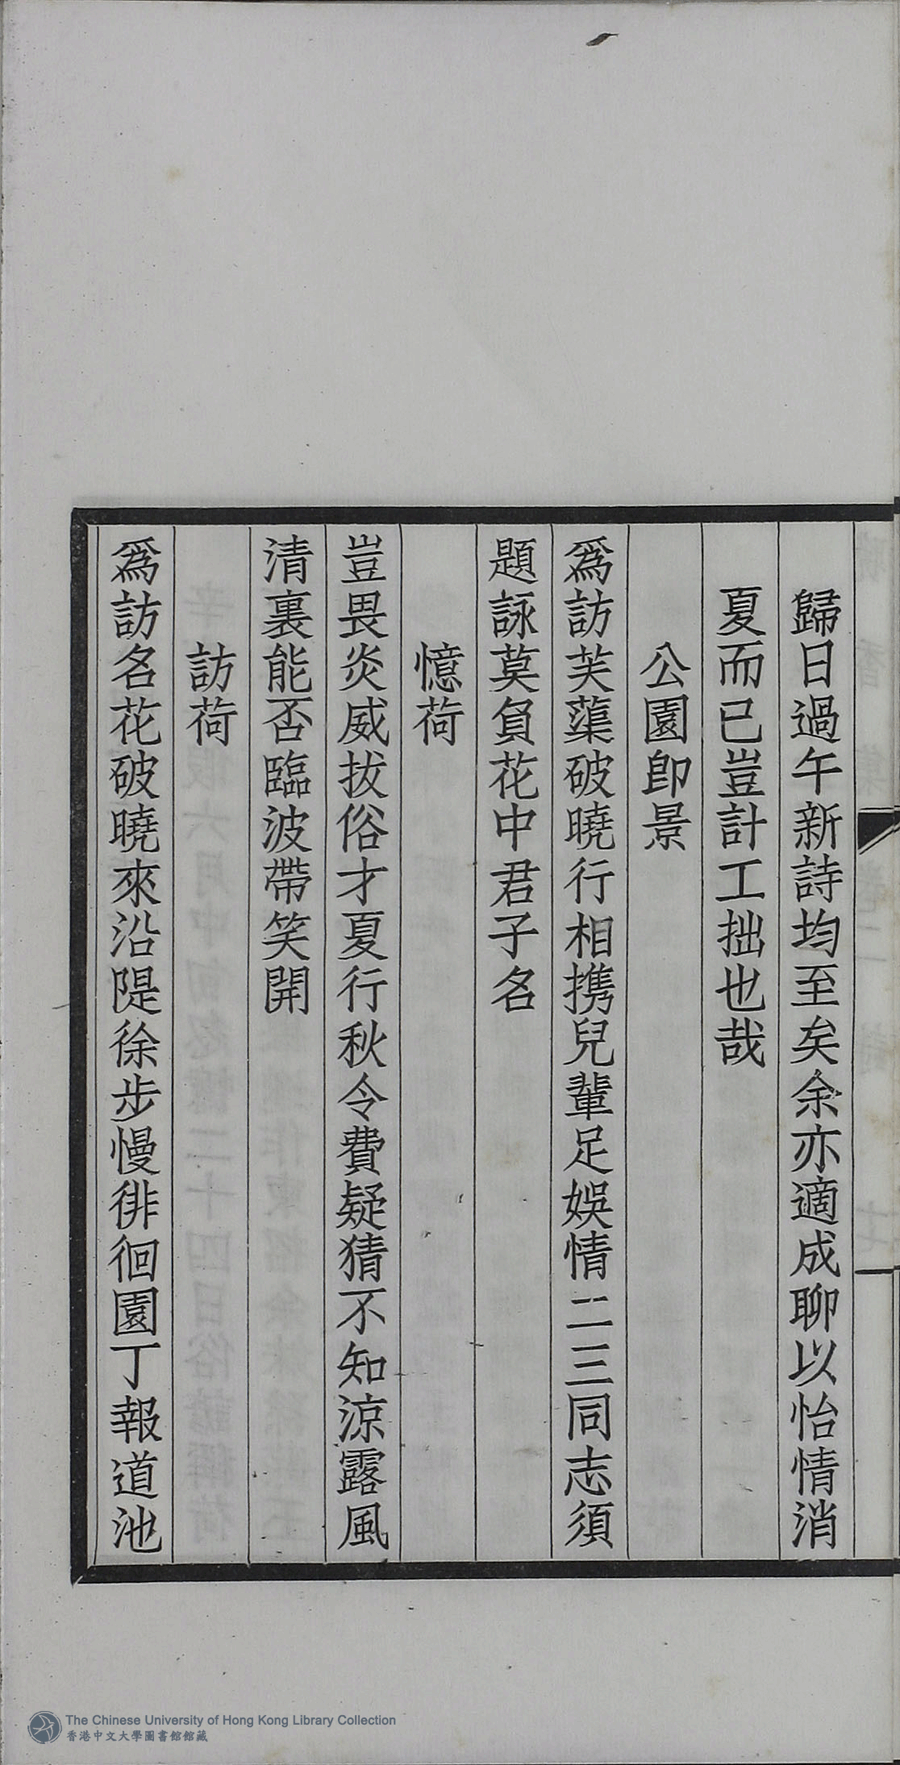 歸日過午新詩均至矣余亦適成聊以怡情消
夏而已豈計工拙也哉
公園即景
為訪芙蕖破曉行相携兒輩足娛情二三同志須
題詠莫負花中君子名
憶荷
豈畏炎威拔俗才夏行秋令費疑猜不知涼露風
清裏能否臨波帶笑開
訪荷
為訪名花破曉來沿隄徐步慢徘徊園丁報道池
The Chinese University of Hong Kong Library Collection
香港中文大學圖書館館藏